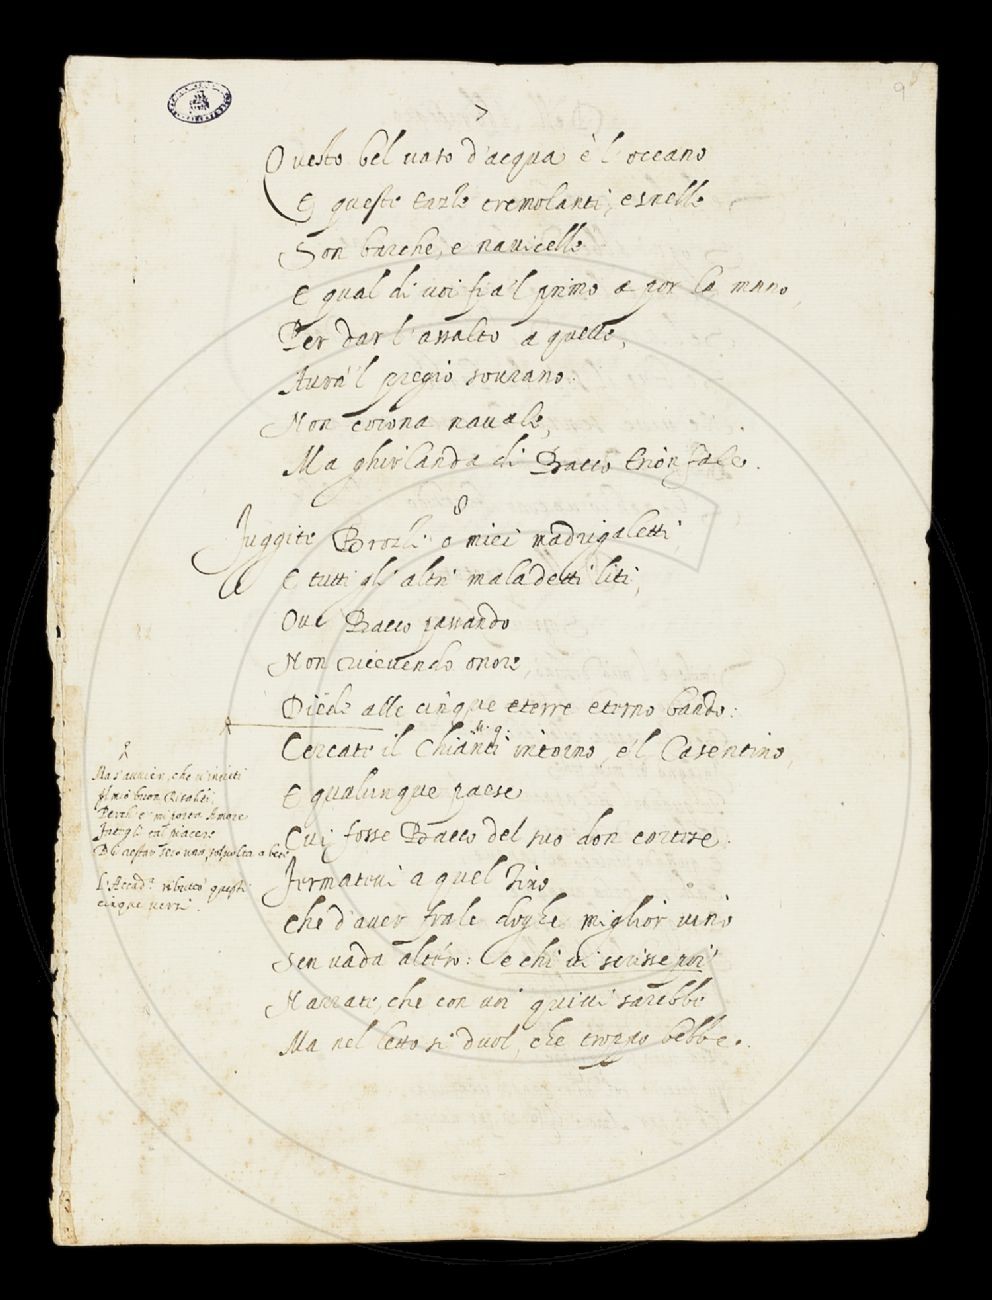 9
7
Questo bel vaso d'acqua è l'oceano
E queste tazze tremolanti, e snelle
Son barche, e navicelle
E qual di voi fia'l primo a por la mano,
Per dar l'assalto a quelle,
Avrà'l pregio sourano.
Non corona navale,
Ma ghirlanda di Bacco trionfale.
8
Fuggite Brozzi o miei madrigaletti,
E tutti gl'altri maladetti liti,
Ove Bacco passando
Non ricevendo onore,
Diede alle cinque eterno bando:
Cercate il Chianti intorno, e'l Casentino,
E qualunque paese
Cui fosse Bacco del suo don cortese.
Fermatevi a quel Tino
Che d'aver frale doghe miglior vino
Sen vada altero: e chi vi scrisse poi
Narrate, che con voi quivi sarebbe
Ma nel letto si duol, che troppo bebbe.
8
Ma s'avvien, che v'inviti
Il mio buon
Perch'e' mi porta Amore
Fategli tal piacere
Di restar seco una sol volta a bere
L'Accad.ª questi
cinque versi.